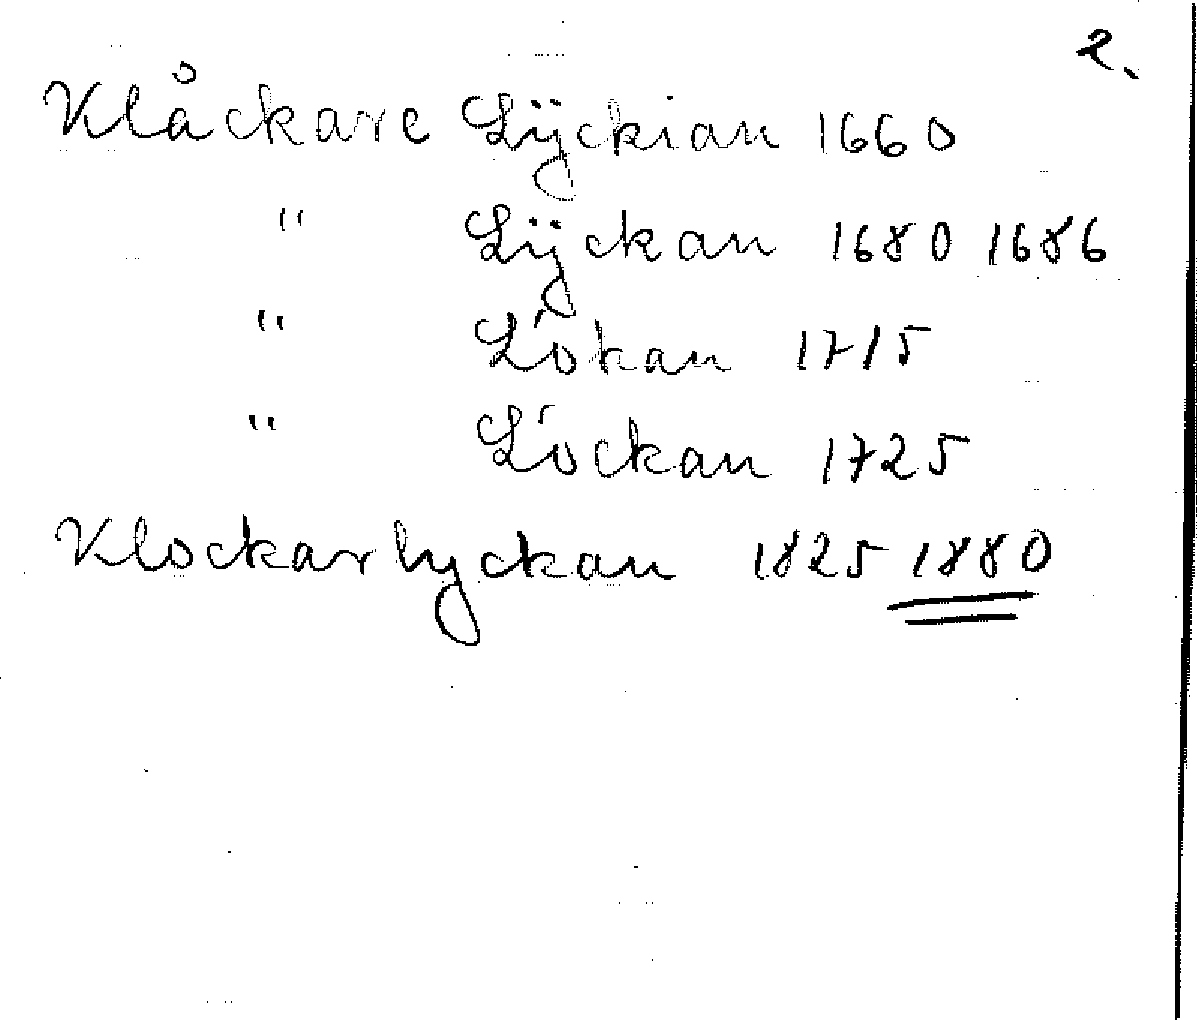 2.
Klåckare Lÿckian 1660
" Lÿckan 1680 1686
" Lókan 1715
" Lóckan 1725
Klockarlyckan 1825 1880